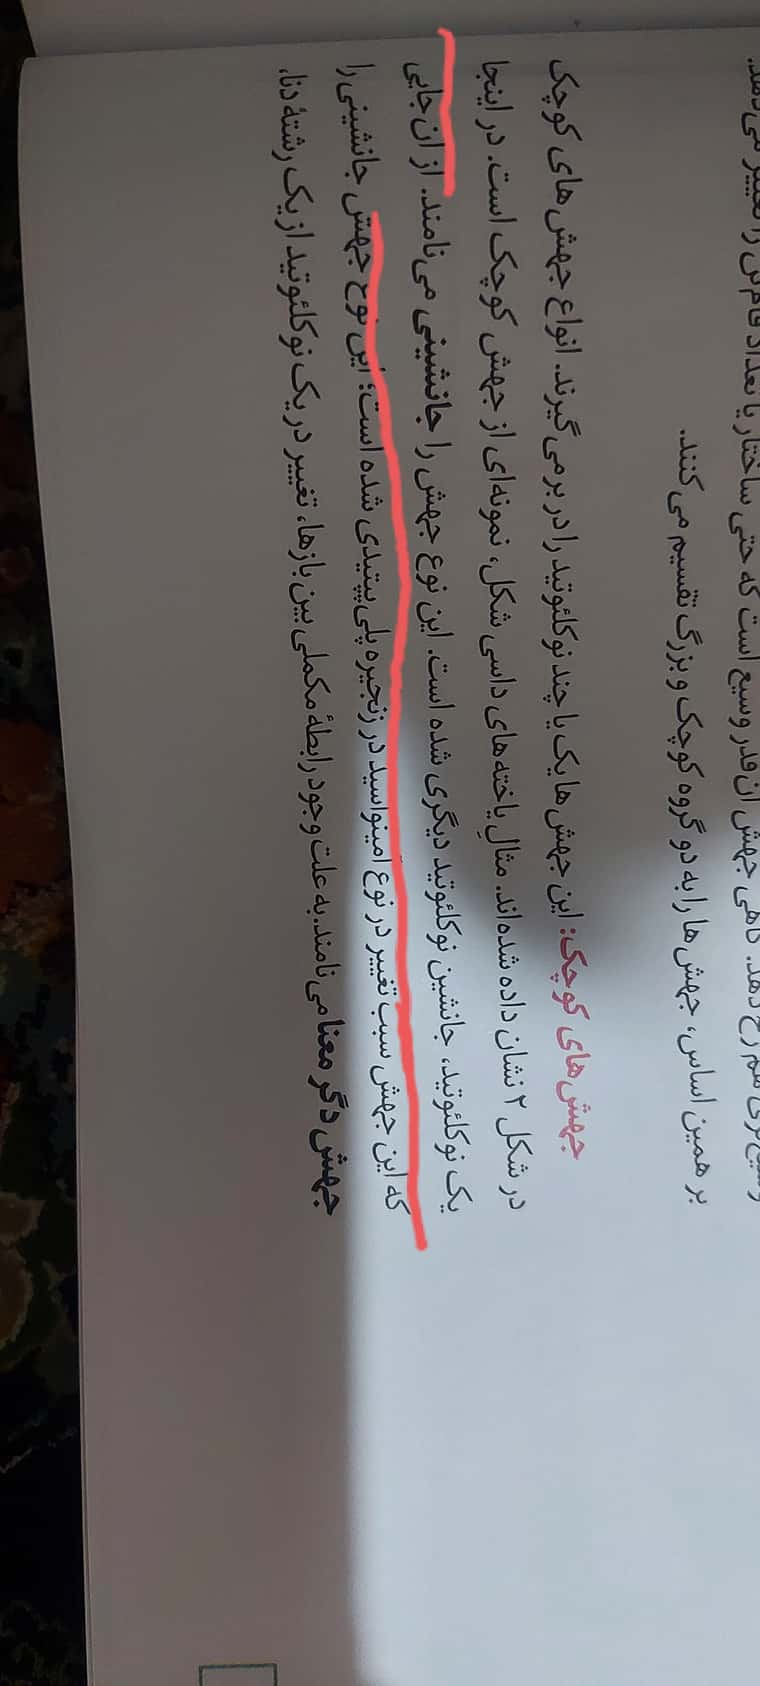 وسیع‌تری هم رخ دهد. گاهی جهش آن‌قدر وسیع است که حتی ساختار یا تعداد فام‌تن را تغییر می‌دهد.
بر همین اساس، جهش‌ها را به دو گروه کوچک و بزرگ تقسیم می‌کنند.
جهش‌های کوچک: این جهش‌ها یک یا چند نوکلئوتید را در بر می‌گیرند. انواع جهش‌های کوچک
در شکل ۲ نشان داده شده‌اند. مثالِ یاخته‌های داسی شکل، نمونه‌ای از جهش کوچک است. در اینجا
یک نوکلئوتید، جانشین نوکلئوتید دیگری شده است. این نوع جهش را جانشینی می‌نامند. از آن جایی
که این جهش سبب تغییر در نوع آمینواسید در زنجیره پلی پپتیدی شده است؛ این نوع جهش جانشینی را
جهش دگر معنا می نامند. به علت وجود رابطهٔ مکملی بین بازها، تغییر در یک نوکلئوتید از یک رشتهٔ دنا،